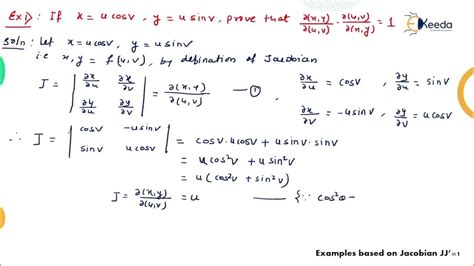 Ex1): If x = u cosv , y = u sinv , prove that ∂(x,y)/∂(u,v) . ∂(u,v)/∂(x,y) = 1
Ekeeda
Soln: Let x = u cosv , y = u sinv
i.e x, y = f(u,v), by defination of Jacobian
J = | ∂x/∂u ∂x/∂v | = ∂(x,y)/∂(u,v) — ①
| ∂y/∂u ∂y/∂v |
∂x/∂u = cosv , ∂y/∂u = sinv
∂x/∂v = -u sinv , ∂y/∂v = u cosv
∴ J = | cosv -u sinv | = cosv . u cosv + u sinv . sinv
| sinv u cosv |
= u cos²v + u sin²v
= u (cos²v + sin²v)
J = ∂(x,y)/∂(u,v) = u — {∵ cos²θ -
Examples based on Jacobian JJ'=1